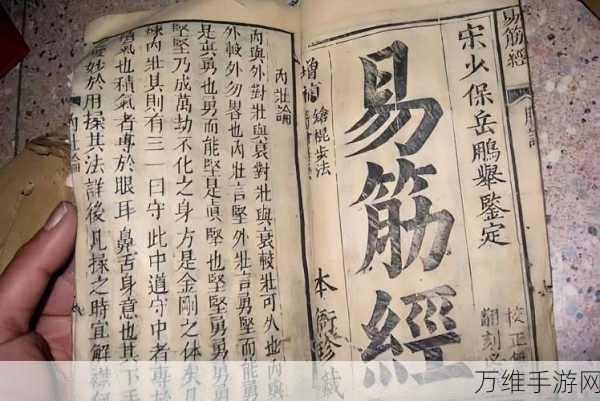 易筋經
宋少保岳鵬舉鑒定
校正無
翻刻必
易筋經
增補
鎗棍步法
本衙珍藏
內壯論
內與外對壯與衰較壯可久也內與
外較外勿畧也內壯言堅外壯言勇
是眞勇也勇而能堅是眞堅也堅堅勇勇勇
堅堅乃成萬劫不化之身方是金剛之体矣凡
煉內壯其則有三一曰守此中道守中者專
積氣也積氣者專於眼耳鼻舌身意也其下手
妙於用揉其法詳後凡揉之時宜解襟
內壯論
万维手游网